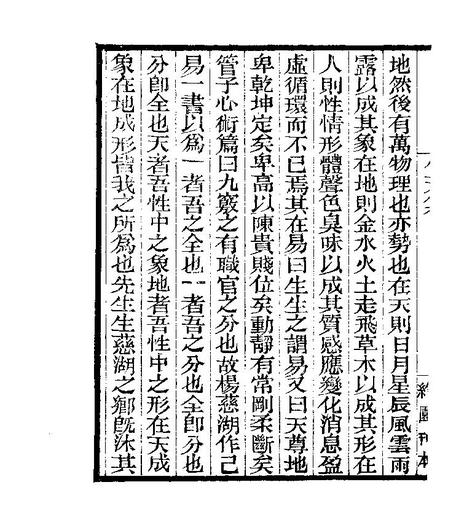 地然後有萬物理也亦勢也在天則日月星辰風雲雨
露以成其象在地則金水火土走飛草木以成其形在
人則性情形體聲色臭味以成其質感應變化消息盈
虛循環而不已焉其在易曰生生之謂易又曰天尊地
卑乾坤定矣卑高以陳貴賤位矣動靜有常剛柔斷矣
管子心術篇曰九竅之有職官之分也故楊慈湖作己
易一書以爲一者吾之全也一者吾之分也全卽分也
分卽全也天者吾性中之象地者吾性中之形在天成
象在地成形皆我之所爲也先生生慈湖之鄉旣沐其